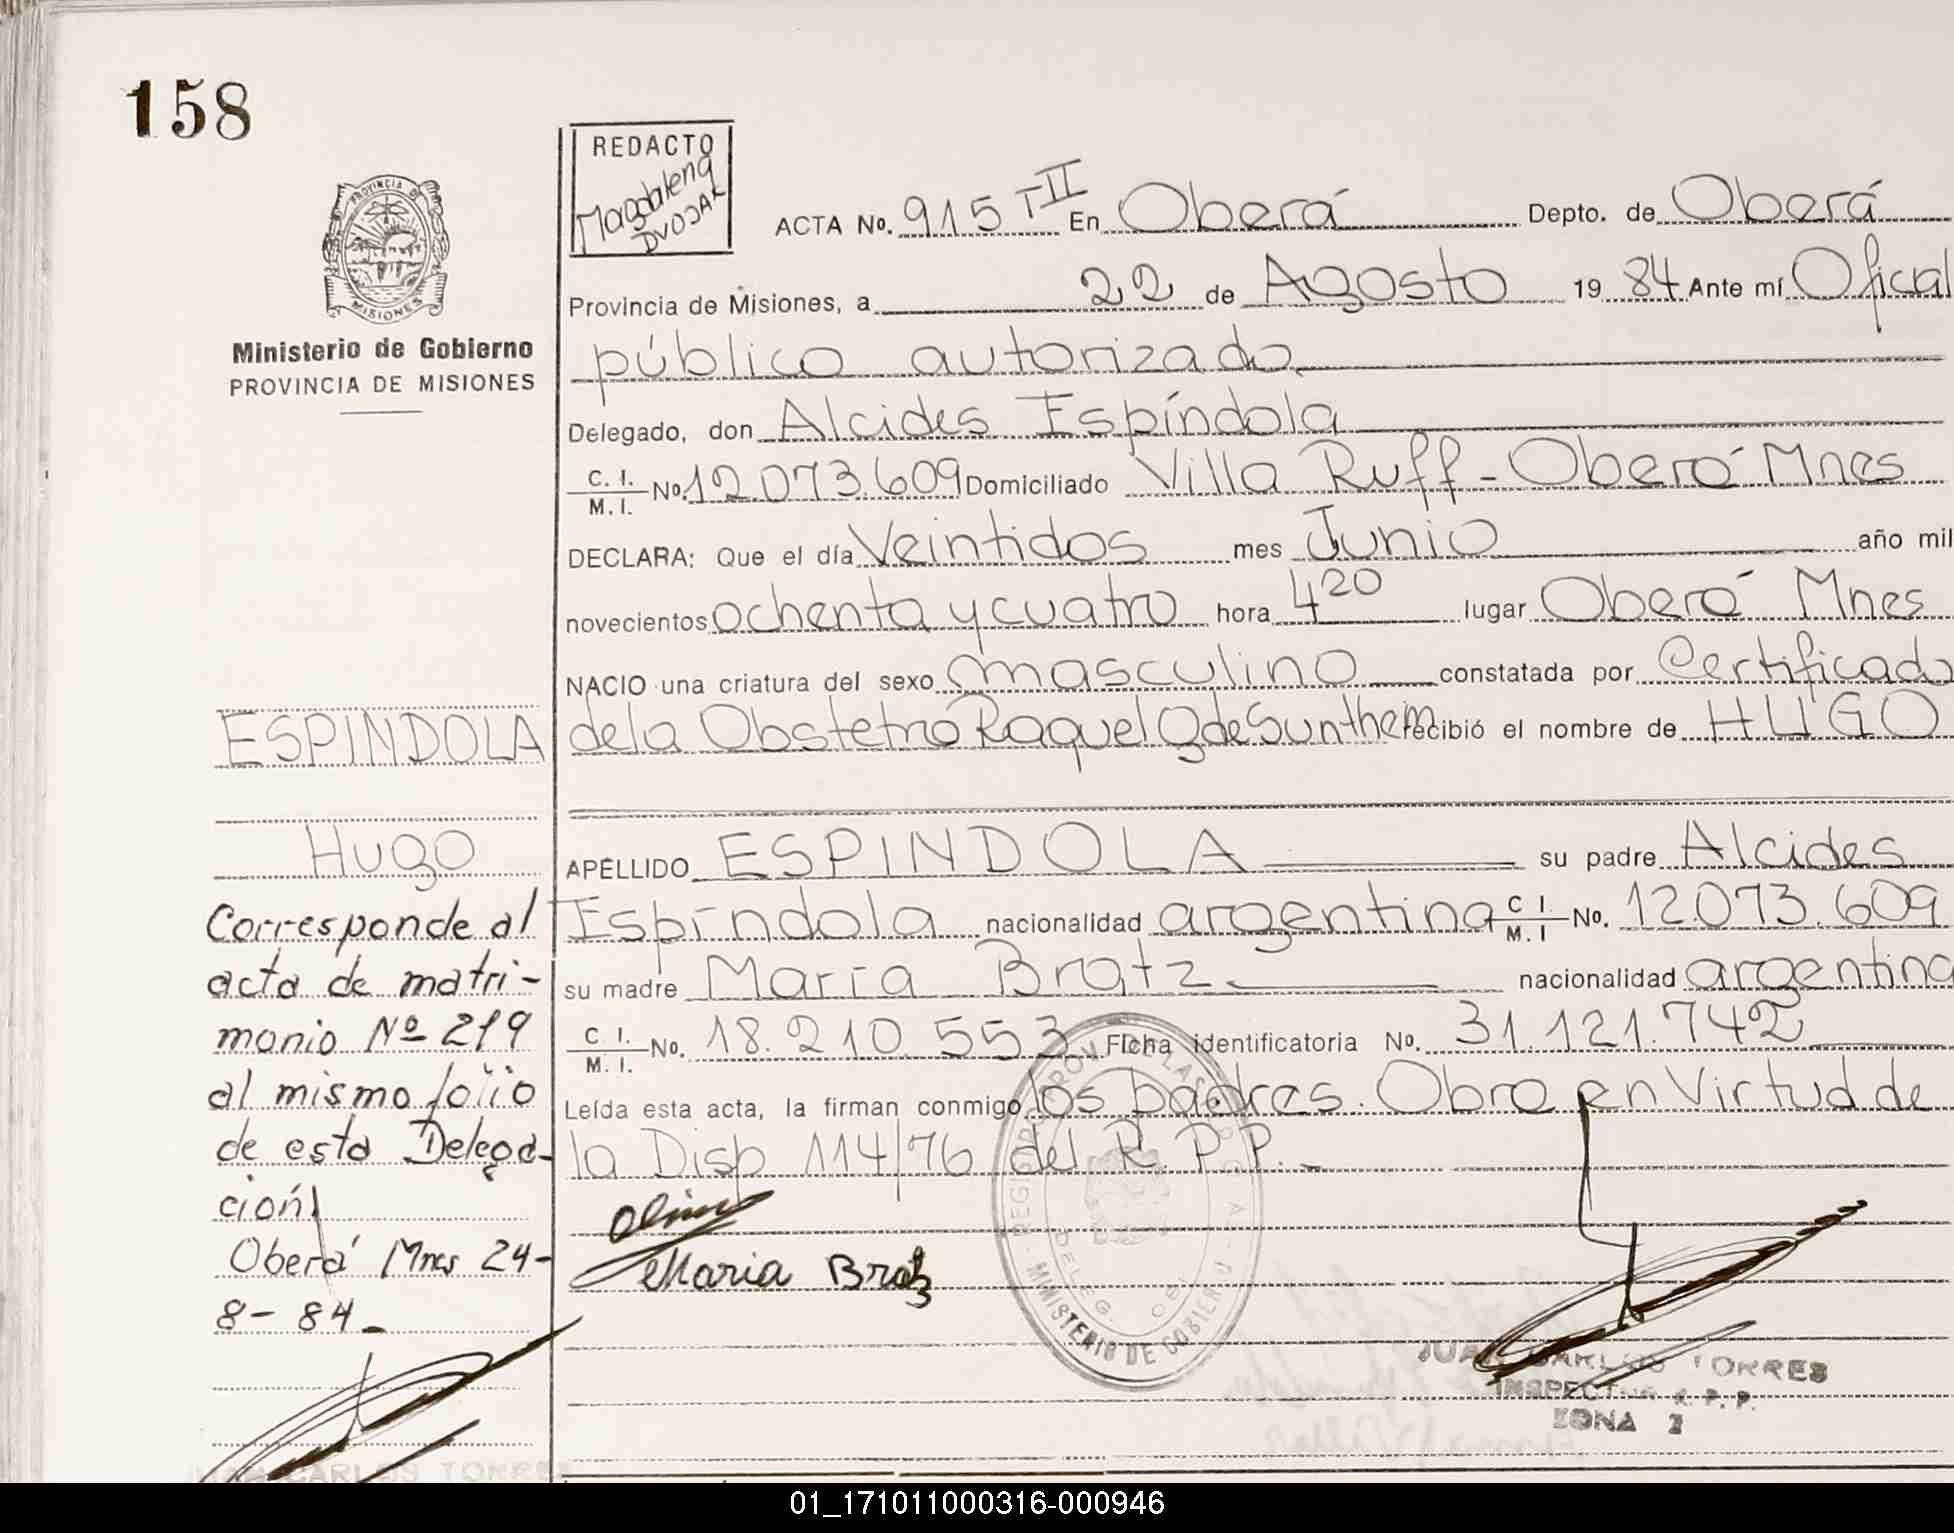 158
PROVINCIA DE
MISIONES
Ministerio de Gobierno
PROVINCIA DE MISIONES
REDACTO
Magdalena
DVOJAK
ACTA No. 915 TII En Oberá Depto. de Oberá
Provincia de Misiones, a 22 de Agosto 1984 Ante mí Oficial
público autorizado
Delegado, don Alcides Espíndola
C. I. M. I. No. 12.073.609 Domiciliado Villa Ruff - Oberá Mnes
DECLARA: Que el día Veintidos mes Junio año mil
novecientos ochenta y cuatro hora 4 20 lugar Oberá Mnes
NACIO una criatura del sexo masculino constatada por Certificado
de la Obstetra Raquel G de Sunthem recibió el nombre de HUGO
APELLIDO ESPINDOLA su padre Alcides
Espíndola nacionalidad argentina C I. M. I No. 12.073.609
su madre María Bratz nacionalidad argentina
C. I. M. I. No. 18.210.553 Ficha identificatoria No. 31.121.742
Leída esta acta, la firman conmigo los padres. Obra en Virtud de
la Disp 114/76 del R. P P. -
Maria Bratz
ESPINDOLA
Hugo
Corresponde al
acta de matri-
monio Nº 219
al mismo folio
de esta Delega-
ción
Oberá Mnes 24-
8-84-
MINISTERIO DE GOBIERNO
JUAN CARLOS TORRES
INSPECTOR R. P. P.
ZONA 2
JUAN CARLOS TORRES
01_171011000316-000946